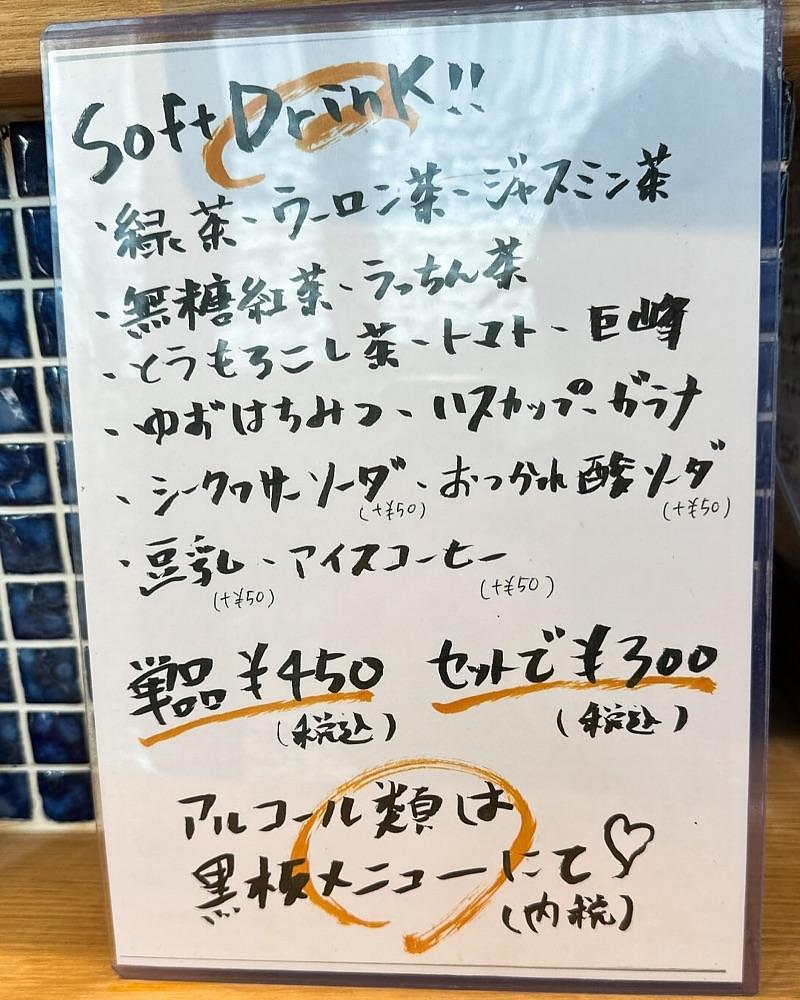 Soft Drink!!
・緑茶・ウーロン茶・ジャスミン茶
・無糖紅茶・うっちん茶
・とうもろこし茶・トマト・巨峰
・ゆずはちみつ・ハスカップ・ガラナ
・シークヮサーソーダ・おつかれ酢ソーダ
(+¥50) (+¥50)
・豆乳・アイスコーヒー
(+¥50) (+¥50)
単品¥450 セットで¥300
(税込) (税込)
アルコール類は
黒板メニューにて♡
(内税)